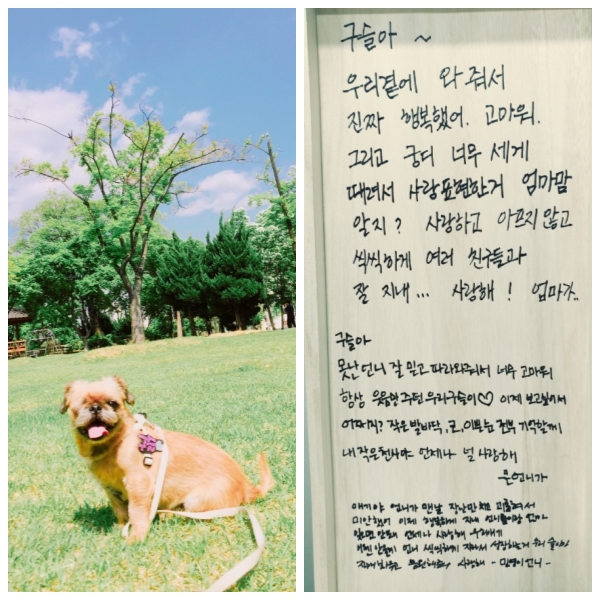 구슬아 ~
우리곁에 와 줘서
진짜 행복했어. 고마워.
그리고 궁디 너무 세게
때려서 사랑표현한거 엄마맘
알지? 사랑하고 아프지 않고
씩씩하게 여러 친구들과
잘 지내... 사랑해! 엄마가..
구슬아
못난 언니 잘 믿고 따라와줘서 너무 고마워
항상 웃음만 주던 우리구슬이♡ 이제 보고싶어서
어떡하지? 작은 발바닥, 코, 이쁜눈 전부 기억할께
내 작은천사야 언제나 널 사랑해
큰언니가
애기야 언니가 맨날 장난만 치고 괴롭혀서
미안했어 이제 행복하게 지내
언제나 사랑해 우리애기
언니 씩씩하게
사랑해